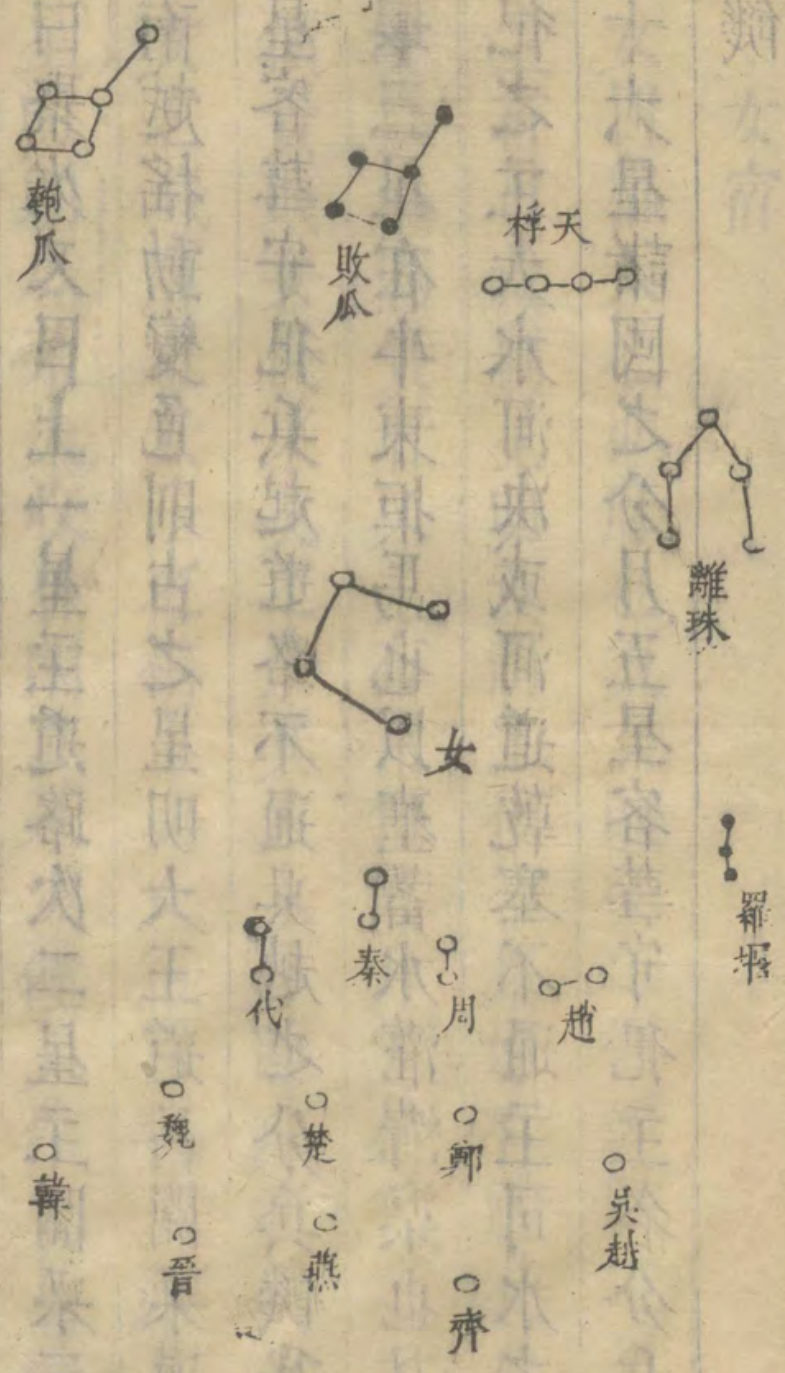 匏瓜
敗瓜
桴天
離珠
女
羅堰
秦
代
周
趙
魏
楚
鄭
韓
吳越
晉
燕
齊